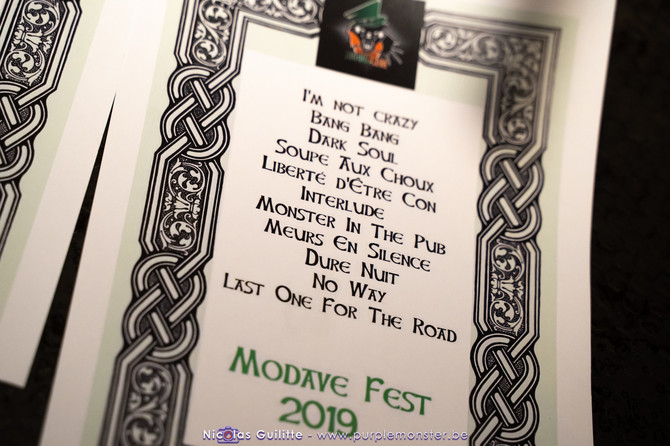 I'm not crazy
Bang Bang
Dark Soul
Soupe Aux Choux
Liberté d'Être Con
Interlude
Monster In The Pub
Meurs En Silence
Dure Nuit
No Way
Last One For The Road
Modave Fest
2019
Nicolas Guilitte - www.purplemonster.be